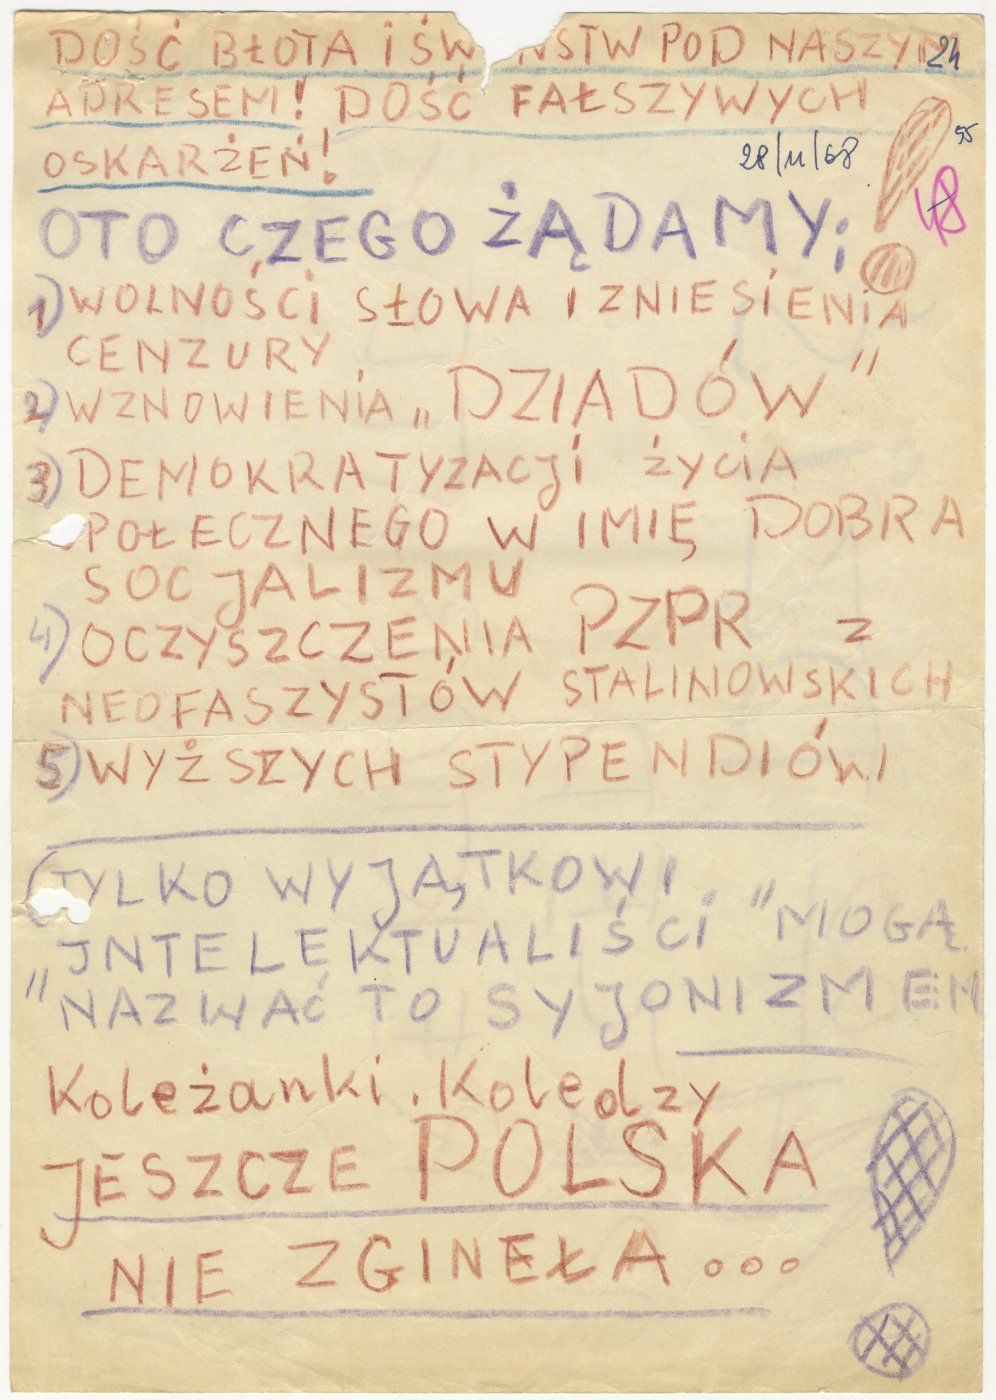 DOŚĆ BŁOTA I ŚW NSTW POD NASZYM
24
ADRESEM! DOŚĆ FAŁSZYWYCH
55
OSKARŻEŃ!
28/11/68
OTO CZEGO ŻĄDAMY;
1) WOLNOŚCI SŁOWA I ZNIESIENIA
CENZURY
2) WZNOWIENIA „DZIADÓW"
3) DEMOKRATYZACJI ŻYCIA
POŁECZNEGO W IMIĘ DOBRA
SOCJALIZMU
4) OCZYSZCZENIA PZPR Z
NEOFASZYSTÓW STALINOWSKICH
5) WYŻSZYCH STYPENDIÓW!
TYLKO WYJĄTKOWI.
„INTELEKTUALIŚCI" MOGĄ
"NAZWAĆ TO SYJONIZMEM
Koleżanki. Koledzy
JESZCZE POLSKA
NIE ZGINĘŁA...